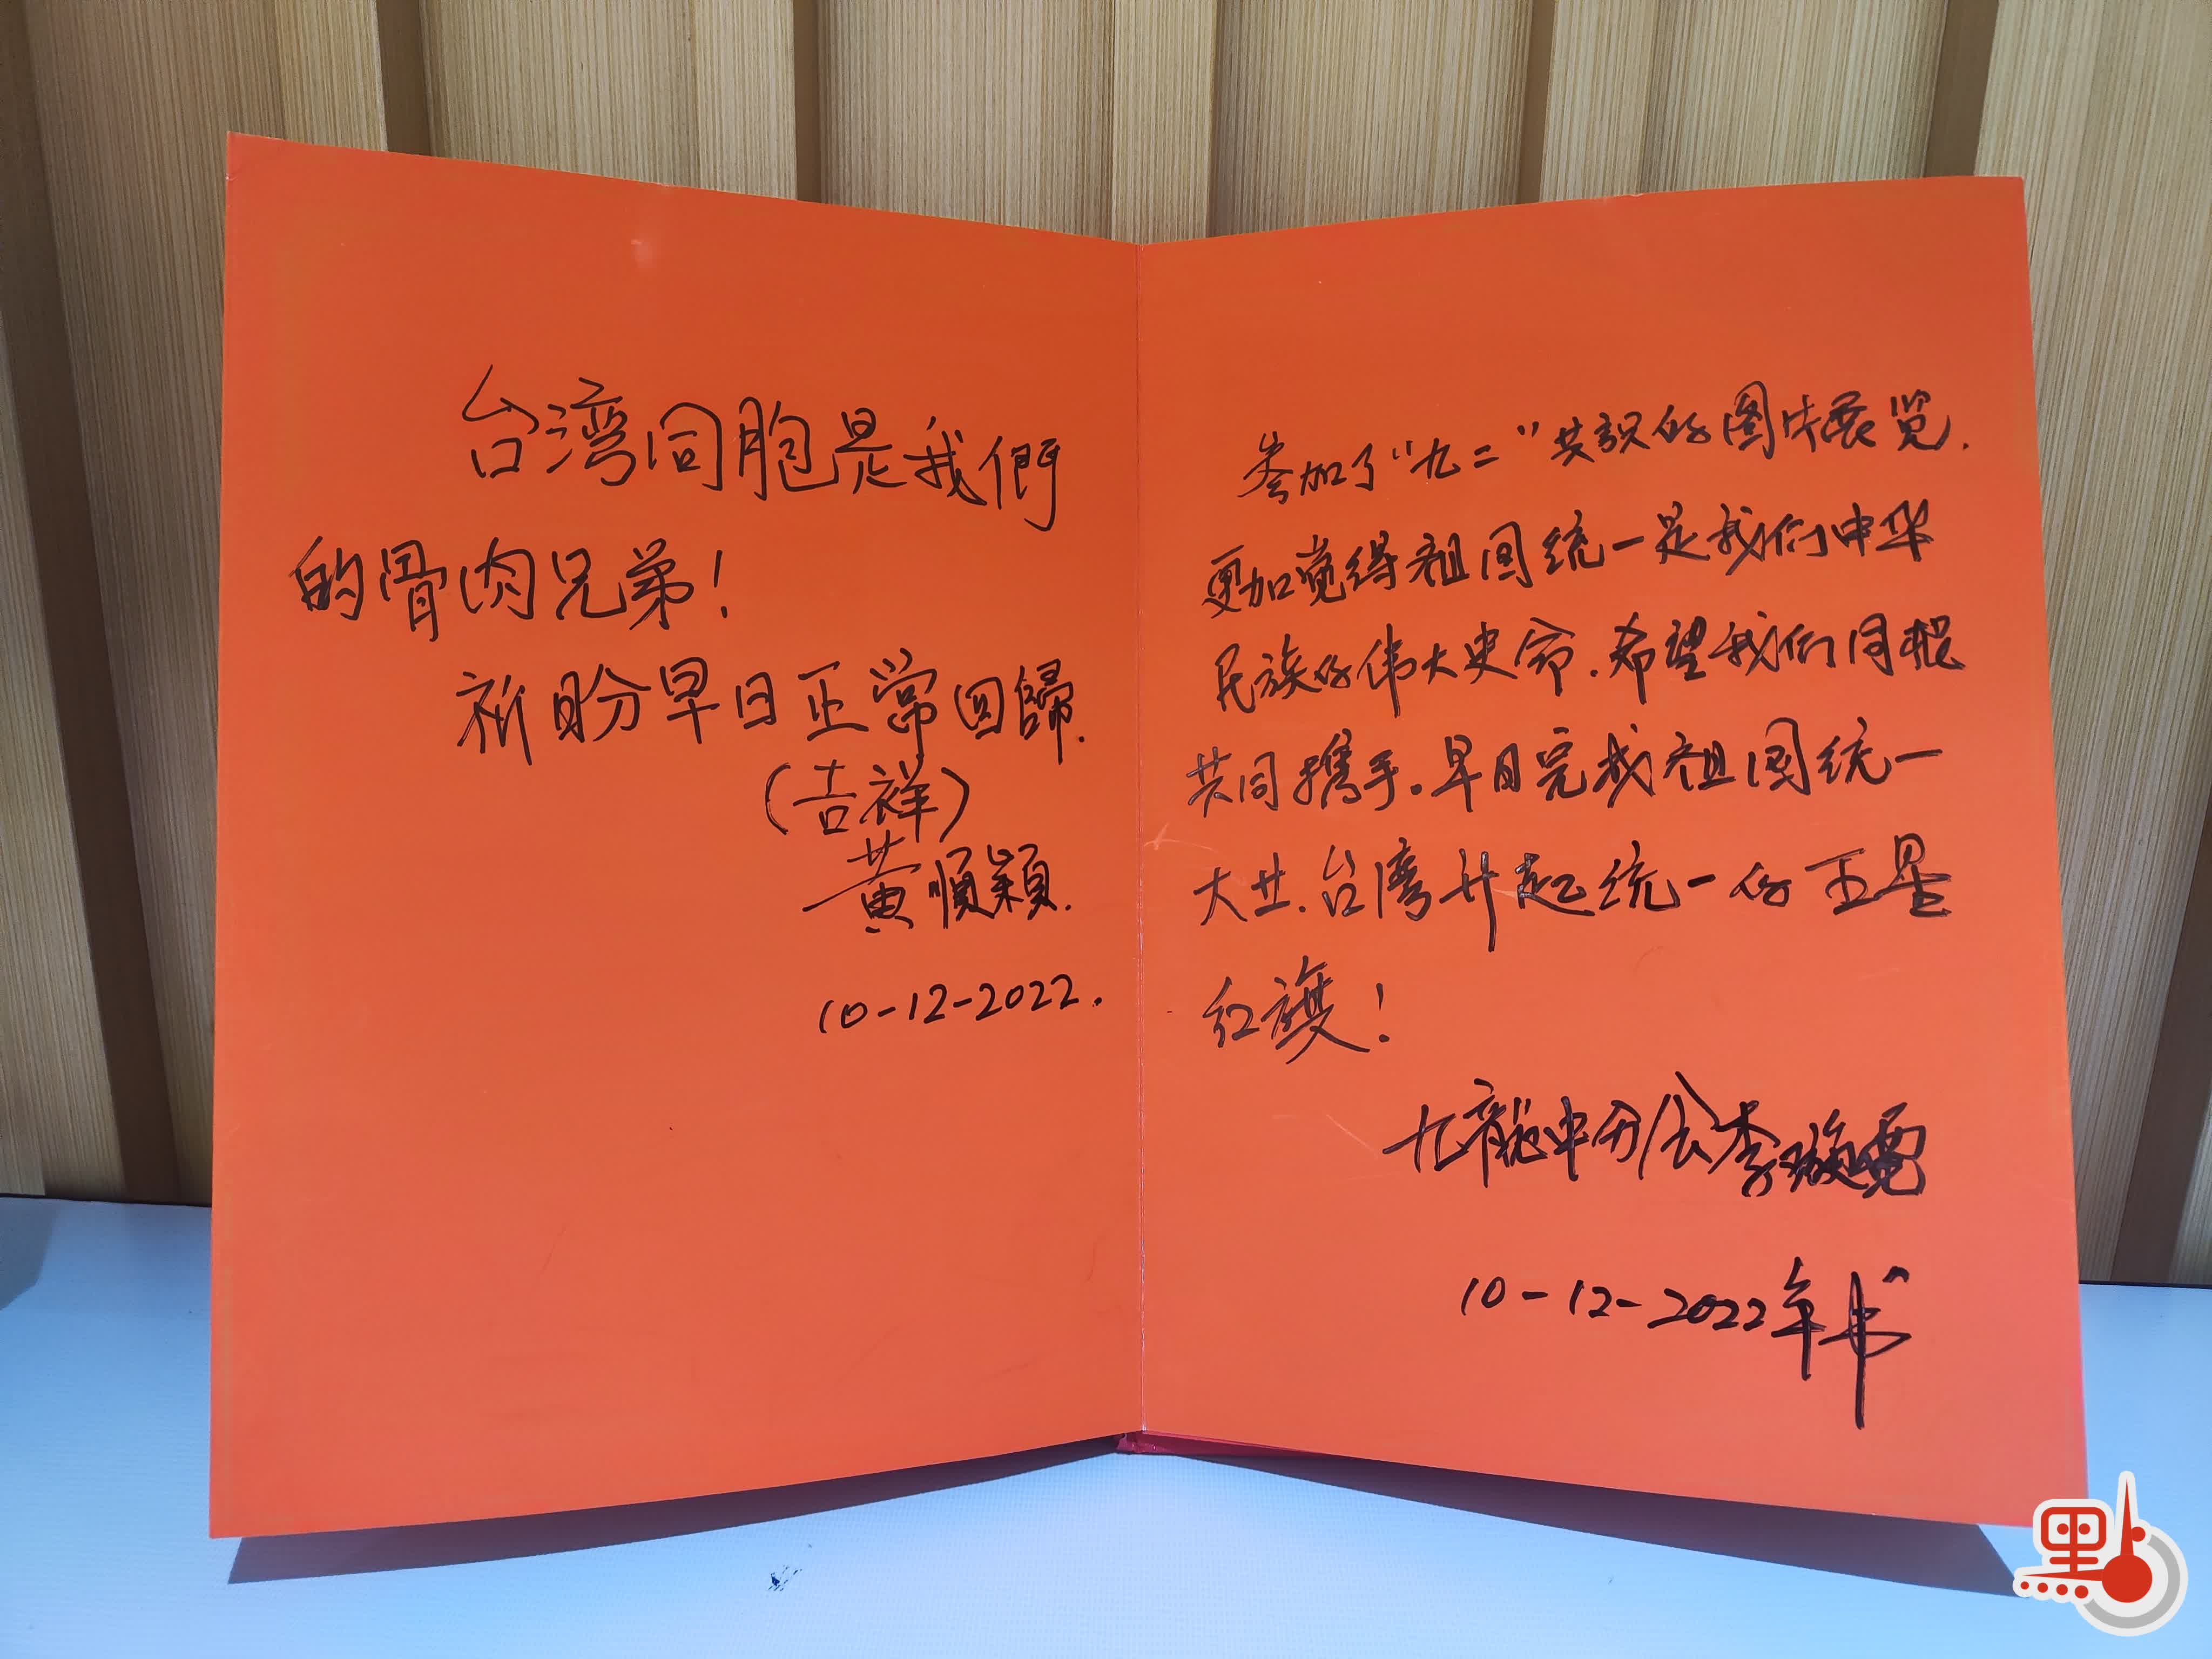 台湾同胞是我們
的骨肉兄弟！
祈盼早日正常回歸.
(吉祥)
黄順穎.
10-12-2022.
参加了“九二”共识的图片展览.
更加觉得祖国统一是我们中华
民族的伟大史命.希望我们同根
共同携手.早日完成祖国统一
大业.台湾升起统一的五星
红旗！
九龍中分会李璇霓
10-12-2022年书
點